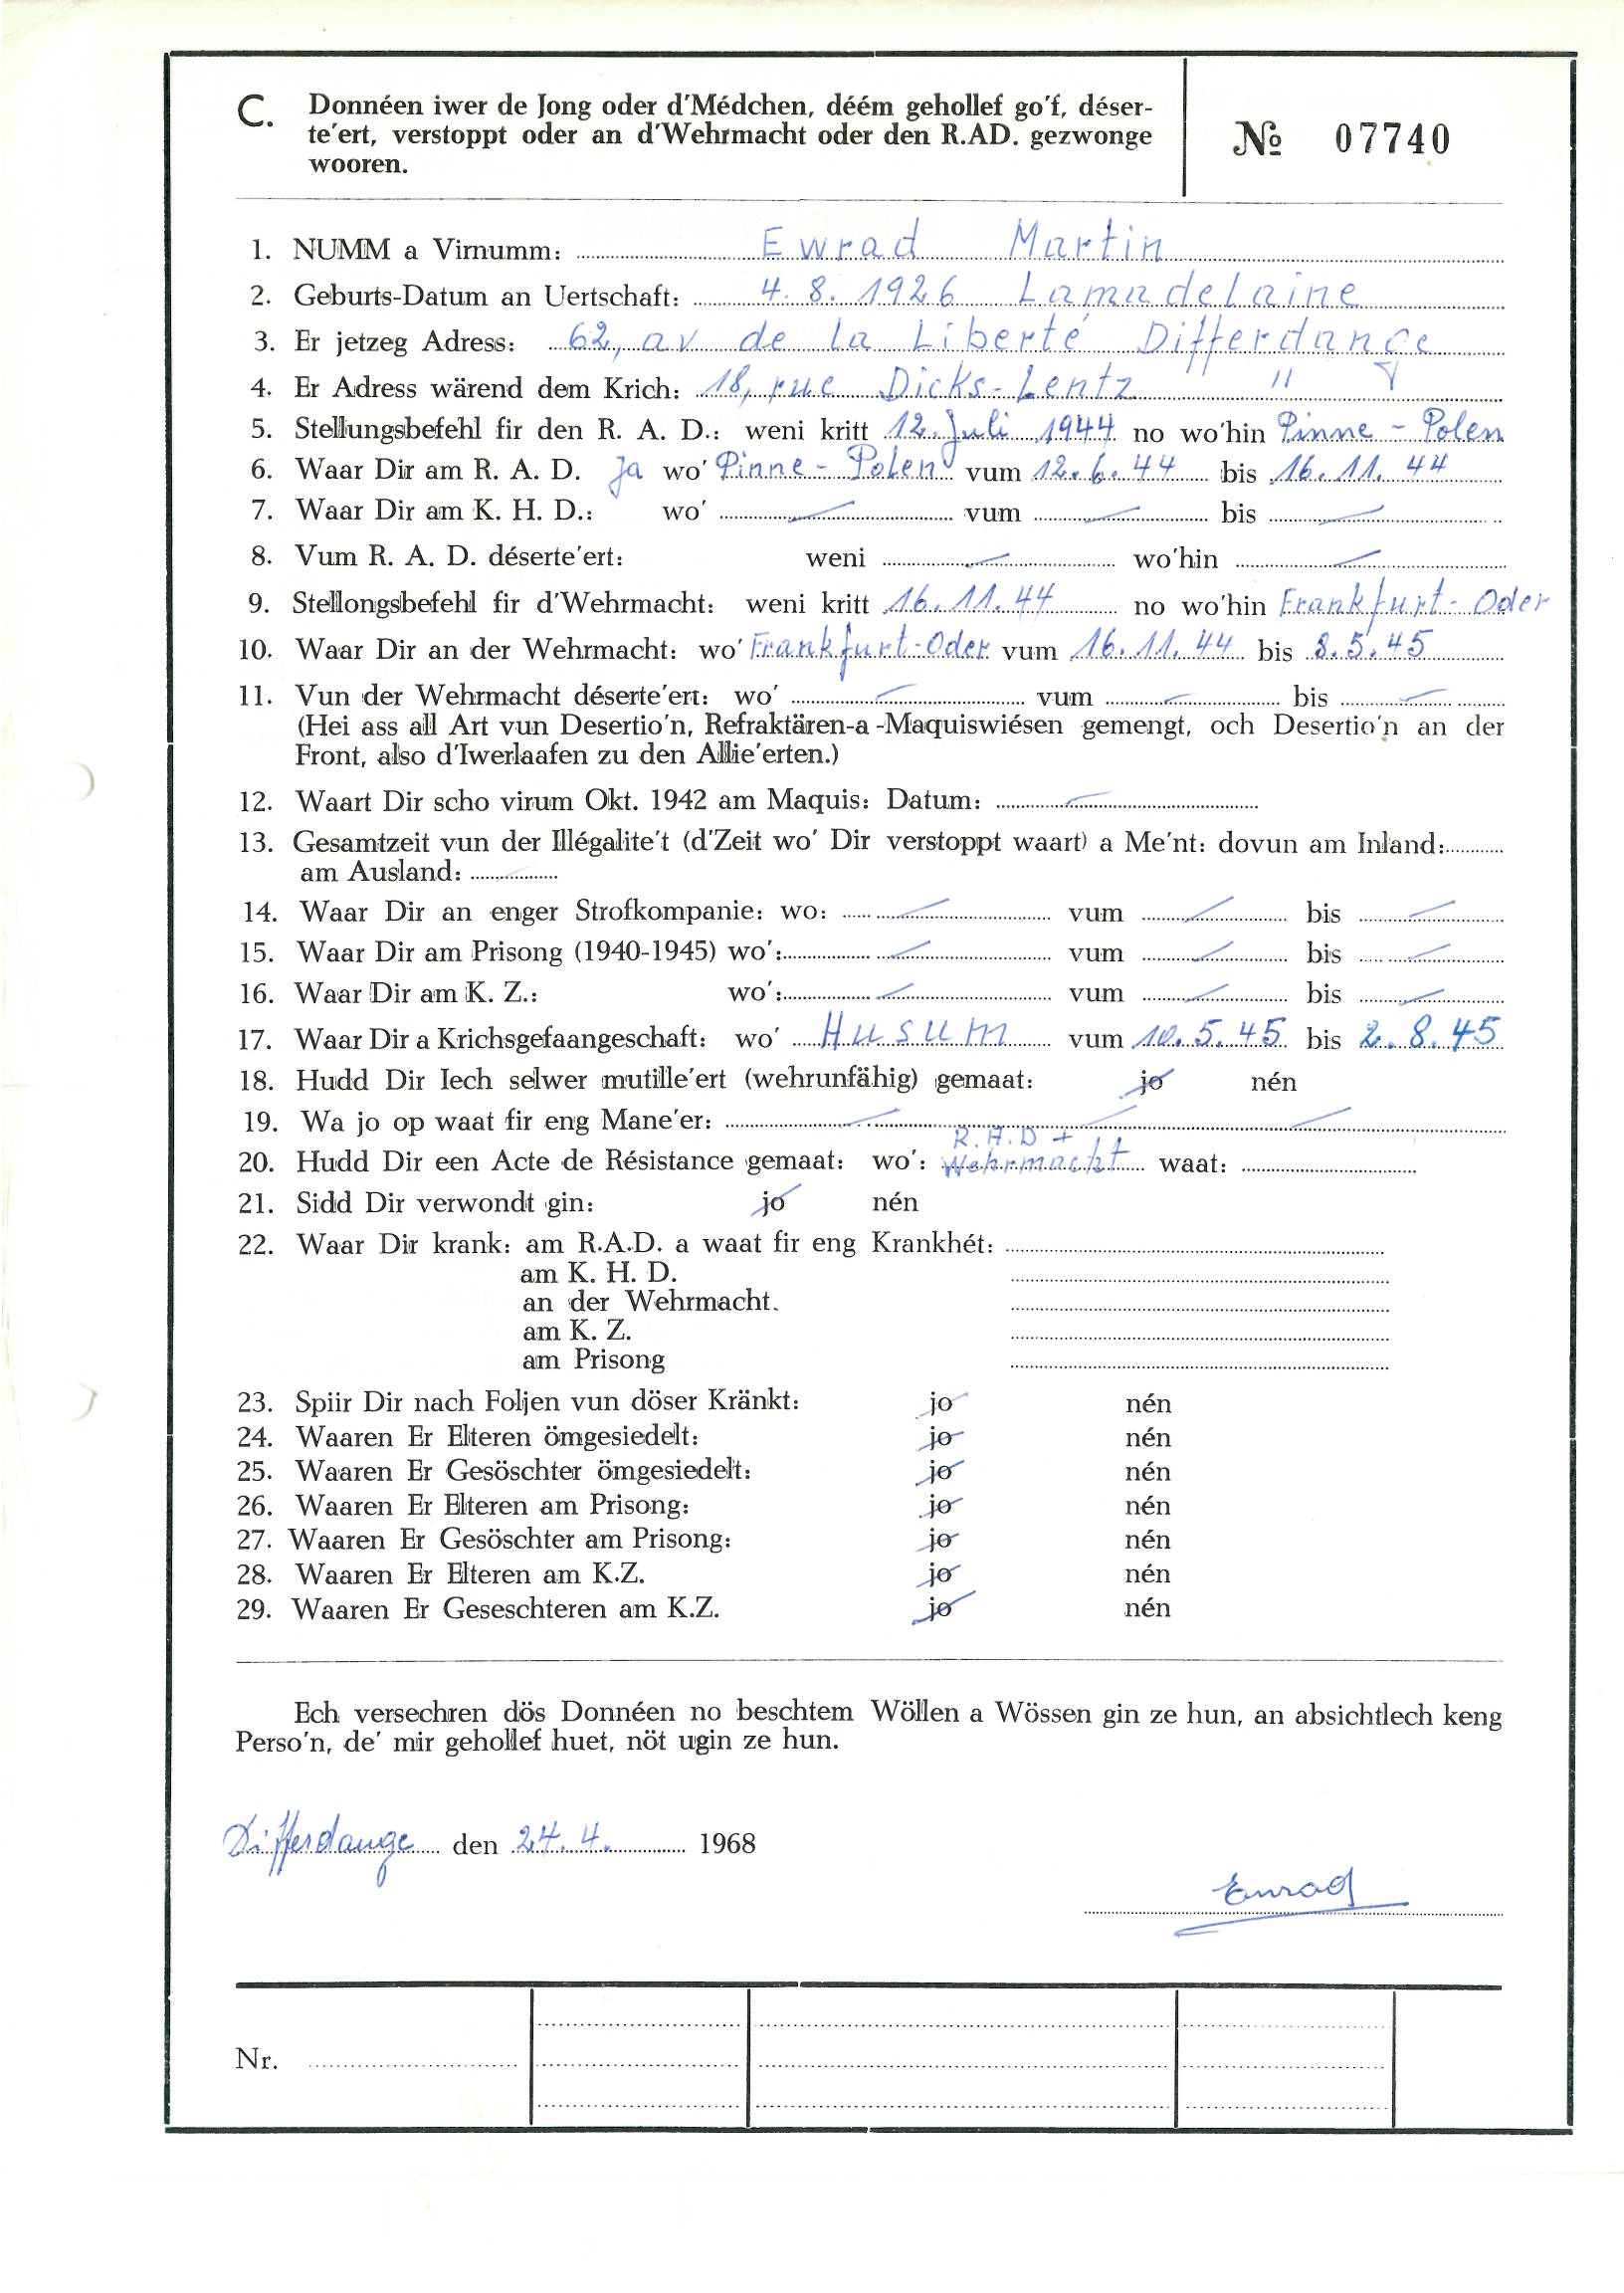 C. Donnéen iwer de Jong oder d'Médchen, déém gehollef go'f, déser-
te'ert, verstoppt oder an d'Wehrmacht oder den R.AD. gezwonge
wooren.
№ 07740
1. NUMM a Virnumm: Ewrad Martin
2. Geburts-Datum an Uertschaft: 4.8.1926 Lamadelaine
3. Er jetzeg Adress: 62, av de la Liberté Differdange
4. Er Adress wärend dem Krich: 18, rue Dicks-Lentz "
5. Stellungsbefehl fir den R. A. D.: weni kritt 12. Juli 1944 no wo'hin Pinne - Polen
6. Waar Dir am R. A. D. Ja wo' Pinne - Polen vum 12.6.44 bis 16.11.44
7. Waar Dir am K. H. D.: wo' — vum — bis —
8. Vum R. A. D. déserte'ert: weni — wo'hin —
9. Stellongsbefehl fir d'Wehrmacht: weni kritt 16.11.44 no wo'hin Frankfurt-Oder
10. Waar Dir an der Wehrmacht: wo' Frankfurt-Oder vum 16.11.44 bis 8.5.45
11. Vun der Wehrmacht déserte'ert: wo' — vum — bis —
(Hei ass all Art vun Desertio'n, Refraktären-a -Maquiswiésen gemengt, och Desertio'n an der
Front, also d'Iwerlaafen zu den Allie'erten.)
12. Waart Dir scho virum Okt. 1942 am Maquis: Datum: —
13. Gesamtzeit vun der Illégalite't (d'Zeit wo' Dir verstoppt waart) a Me'nt: dovun am Inland:
am Ausland: —
14. Waar Dir an enger Strofkompanie: wo: — vum — bis —
15. Waar Dir am Prisong (1940-1945) wo': — vum — bis —
16. Waar Dir am K. Z.: wo': — vum — bis —
17. Waar Dir a Krichsgefaangeschaft: wo' Husum vum 10.5.45 bis 2.8.45
18. Hudd Dir Iech selwer mutille'ert (wehrunfähig) gemaat: jo nén
19. Wa jo op waat fir eng Mane'er: — — —
20. Hudd Dir een Acte de Résistance gemaat: wo': R.A.D + Wehrmacht waat:
21. Sidd Dir verwondt gin: jo nén
22. Waar Dir krank: am R.A.D. a waat fir eng Krankhét:
am K. H. D.
an der Wehrmacht.
am K. Z.
am Prisong
23. Spiir Dir nach Foljen vun döser Kränkt: jo nén
24. Waaren Er Elteren ömgesiedelt: jo nén
25. Waaren Er Gesöschter ömgesiedelt: jo nén
26. Waaren Er Elteren am Prisong: jo nén
27. Waaren Er Gesöschter am Prisong: jo nén
28. Waaren Er Elteren am K.Z. jo nén
29. Waaren Er Geseschteren am K.Z. jo nén
Ech versechren dös Donnéen no beschtem Wöllen a Wössen gin ze hun, an absichtlech keng
Perso'n, de' mir gehollef huet, nöt ugin ze hun.
Differdange den 24.4. 1968
Ewrad
Nr.